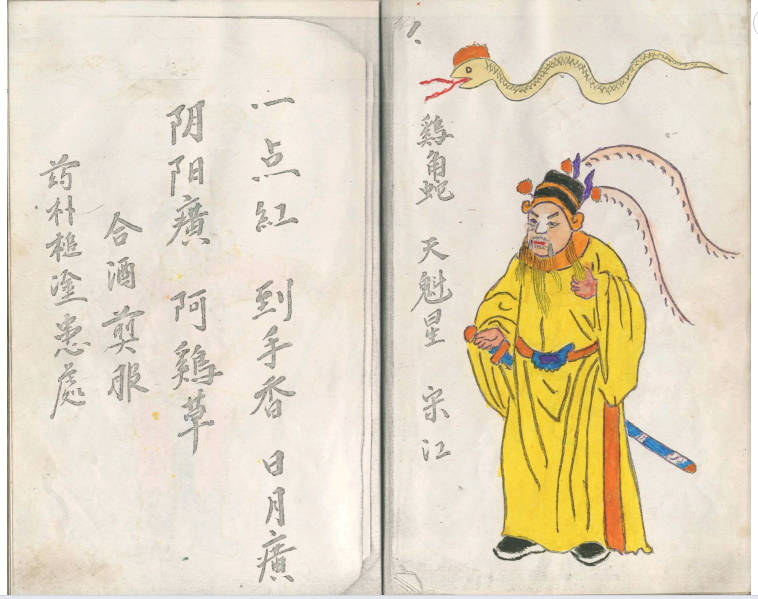 1、
鷄角蛇 天魁星 宋江
一点紅 到手香 日月癀
阴阳癀 阿鷄草
合酒煎服
药朴槌塗患處